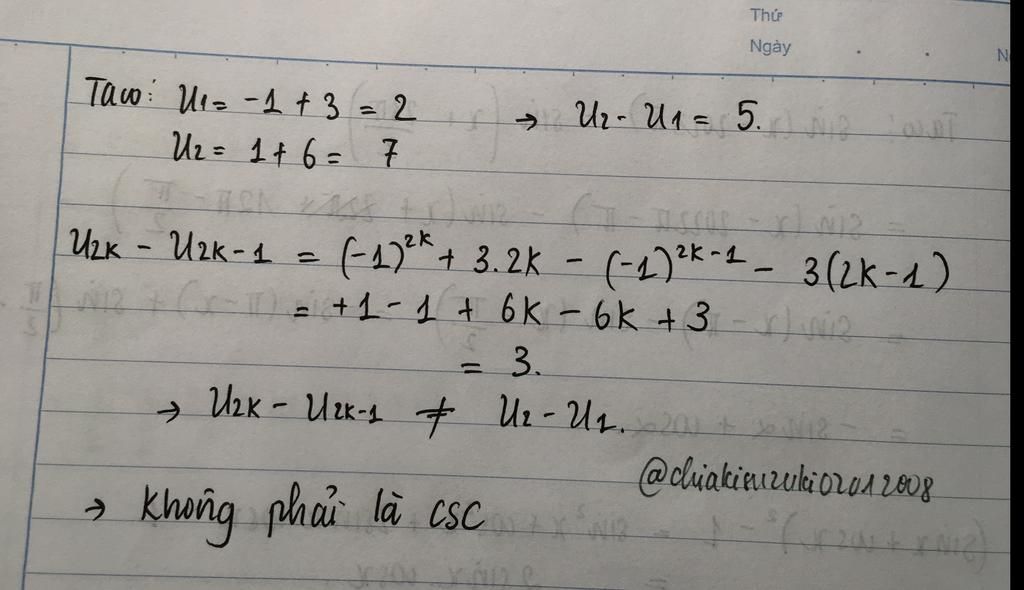 Thứ
Ngày
Taco: U1 = -1 + 3 = 2 → U2 - U1 = 5.
U2 = 1 + 6 = 7
U2K - U2K-1 = (-1)^2K + 3.2K - (-1)^2K-1 - 3(2K-1)
= +1 - 1 + 6K - 6K + 3
= 3.
→ U2K - U2K-1 ≠ U2 - U1.
@chiakisuzuki02012008
→ Không phải là CSC